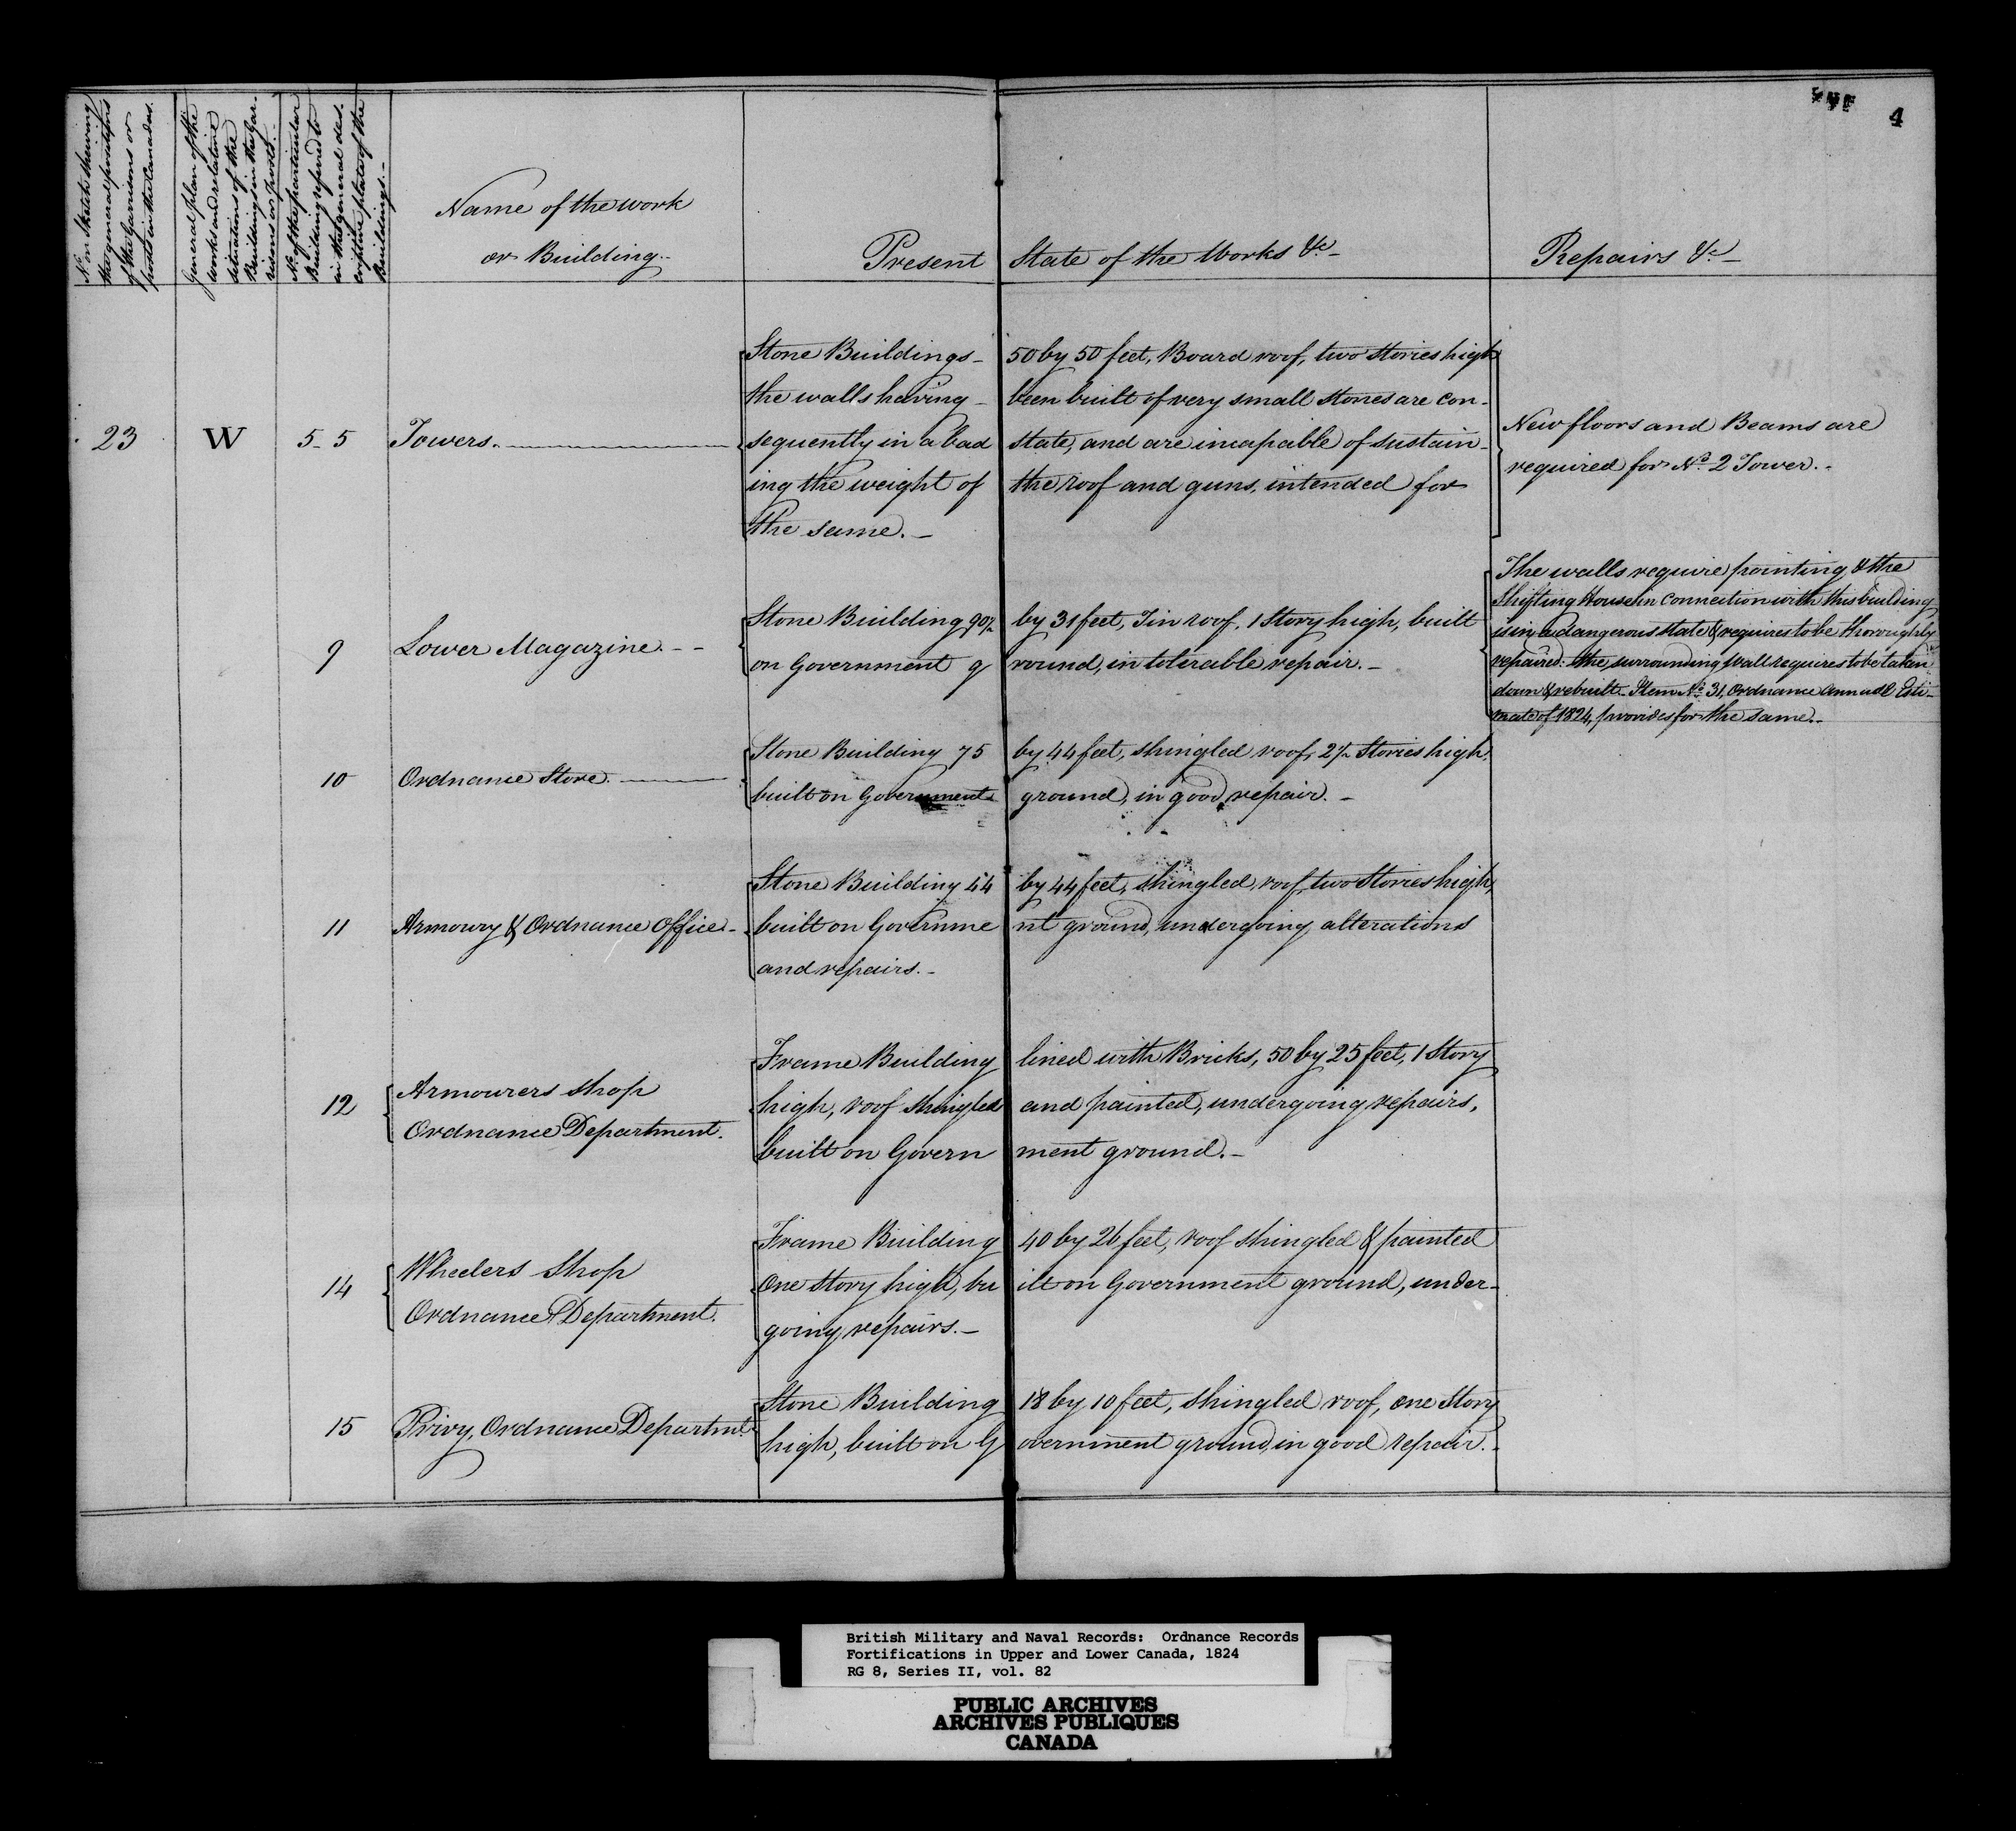 4
No. on Sketch shewing
the general positions
of the Garrisons or
posts in the Canadas.
General plan of the
works and relative
situations of the
Buildings in the Gar-
risons or Posts.
No. of the particular
Building refered to
in the general des-
criptive plate of the
Buildings.-
Name of the work
or Building.-
Present State of the Works &c-
Repairs &c-
23 W 5-5 Towers.
Stone Buildings- 50 by 50 feet, Board roof, two Stories high
the walls having- been built of very small stones are con-
sequently in a bad state, and are incapable of sustain-
ing the weight of the roof and guns, intended for
the same.-
New floors and Beams are
required for No. 2 Tower.-
9 Lower Magazine.--
Stone Building 90½ by 31 feet, Tin roof, 1 Story high, built
on Government ground, in tolerable repair.-
The walls require pointing & the
Shifting House in connection with this building
is in a dangerous state & requires to be thoroughly
repaired: the surrounding Wall requires to be taken
down & rebuilt- Item No. 31, Ordnance annual Esti-
mate of 1824, provides for the same.-
10 Ordnance Store.
Stone Building 75 by 44 feet, shingled roof, 2½ Stories high,
built on Government ground, in good repair.-
11 Armoury & Ordnance Office-
Stone Building 44 by 44 feet, shingled roof, two Stories high,
built on Government ground, undergoing alterations
and repairs.-
12 Armourers shop
Ordnance Department.
Frame Building lined with Bricks, 50 by 25 feet, 1 Story
high, roof shingled and painted, undergoing repairs,
built on Government ground.-
14 Wheelers Shop
Ordnance Department.
Frame Building 40 by 26 feet, roof shingled & painted
One Story high, built on Government ground, under-
going repairs.-
15 Privy, Ordnance Departmt.
Stone Building 18 by 10 feet, shingled roof, one Story
high, built on Government ground, in good repair.-
British Military and Naval Records: Ordnance Records
Fortifications in Upper and Lower Canada, 1824
RG 8, Series II, vol. 82
PUBLIC ARCHIVES
ARCHIVES PUBLIQUES
CANADA